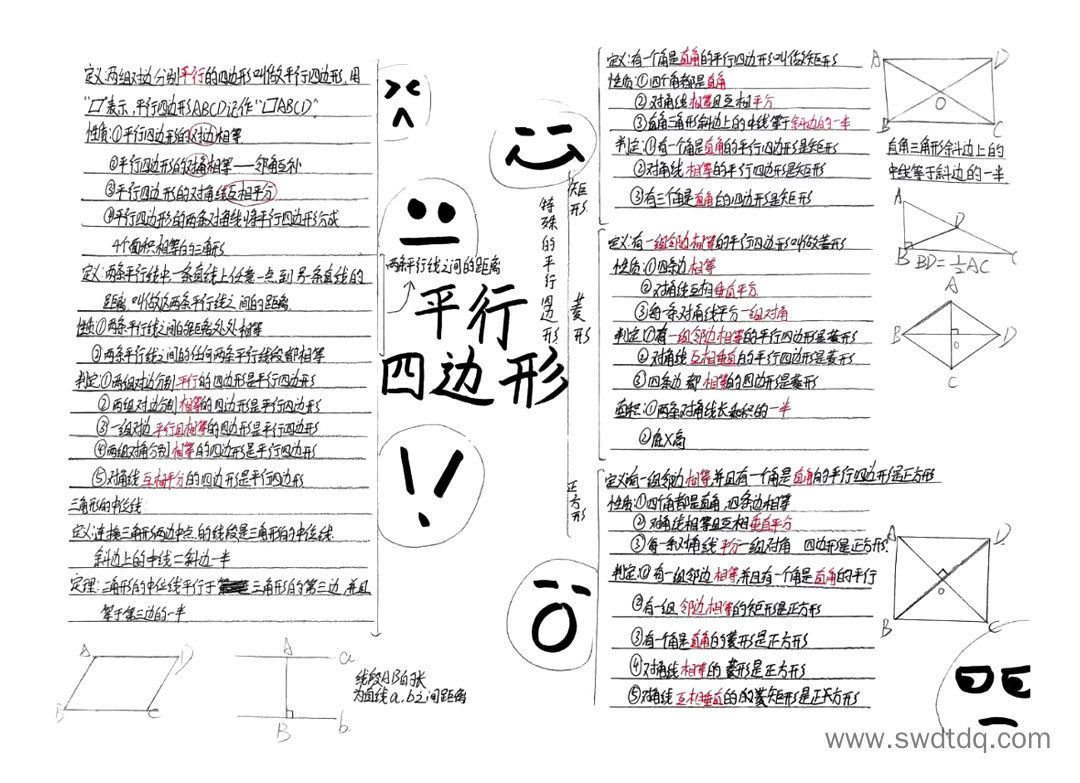 定义:两组对边分别平行的四边形叫做平行四边形,用
"□"表示,平行四边形ABCD记作"□ABCD"
性质:①平行四边形的对边相等
②平行四边形的对角相等——邻角互补
③平行四边形的对角线互相平分
④平行四边形的两条对角线将平行四边形分成
4个面积相等的三角形
定义:两条平行线中,一条直线上任意一点到另一条直线的
距离,叫做这两条平行线之间的距离
性质:①两条平行线之间的距离处处相等
②两条平行线之间的任何两条平行线段都相等
判定:①两组对边分别平行的四边形是平行四边形
②两组对边分别相等的四边形是平行四边形
③一组对边平行且相等的四边形是平行四边形
④两组对角分别相等的四边形是平行四边形
⑤对角线互相平分的四边形是平行四边形
三角形的中位线
定义:连接三角形两边中点的线段是三角形的中位线
斜边上的中线=斜边一半
定理:三角形的中位线平行于三角形的第三边,并且
等于第三边的一半
A D
B C
A a
B b
线段AB的长
为直线a,b之间距离
两条平行线之间的距离
平行
四边形
特殊的平行四边形
矩形
菱形
正方形
定义:有一个角是直角的平行四边形叫做矩形
性质:①四个角都是直角
②对角线相等且互相平分
③直角三角形斜边上的中线等于斜边的一半
判定:①有一个角是直角的平行四边形是矩形
②对角线相等的平行四边形是矩形
③有三个角是直角的四边形是矩形
A D
O
B C
直角三角形斜边上的
中线等于斜边的一半
A
D
B C
BD=½AC
定义:有一组邻边相等的平行四边形叫做菱形
性质:①四条边相等
②对角线互相垂直平分
③每一条对角线平分一组对角
判定:①有一组邻边相等的平行四边形是菱形
②对角线互相垂直的平行四边形是菱形
③四条边都相等的四边形是菱形
面积:①两条对角线长乘积的一半
②底×高
A
B O D
C
定义:有一组邻边相等,并且有一个角是直角的平行四边形是正方形
性质:①四个角都是直角,四条边相等
②对角线相等且互相垂直平分
③每一条对角线平分一组对角 四边形是正方形
判定:①有一组邻边相等,并且有一个角是直角的平行
②有一组邻边相等的矩形是正方形
③有一个角是直角的菱形是正方形
④对角线相等的菱形是正方形
⑤对角线互相垂直的矩形是正方形
A D
O
B C
www.swdtdq.com